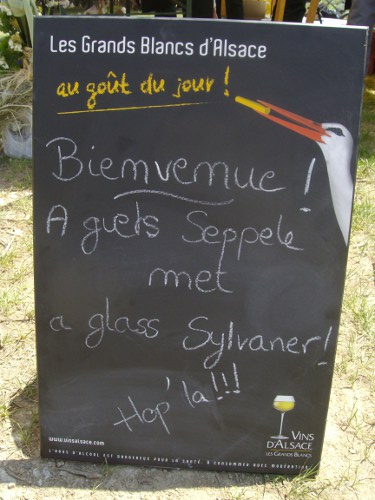 Les Grands Blancs d'Alsace
au goût du jour !
Bienvenue !
A guets Seppele
met
a glass Sylvaner!
Hop'la!!!
www.vinsalsace.com
VINS
D'ALSACE
LES GRANDS BLANCS
L'ABUS D'ALCOOL EST DANGEREUX POUR LA SANTÉ, À CONSOMMER AVEC MODÉRATION